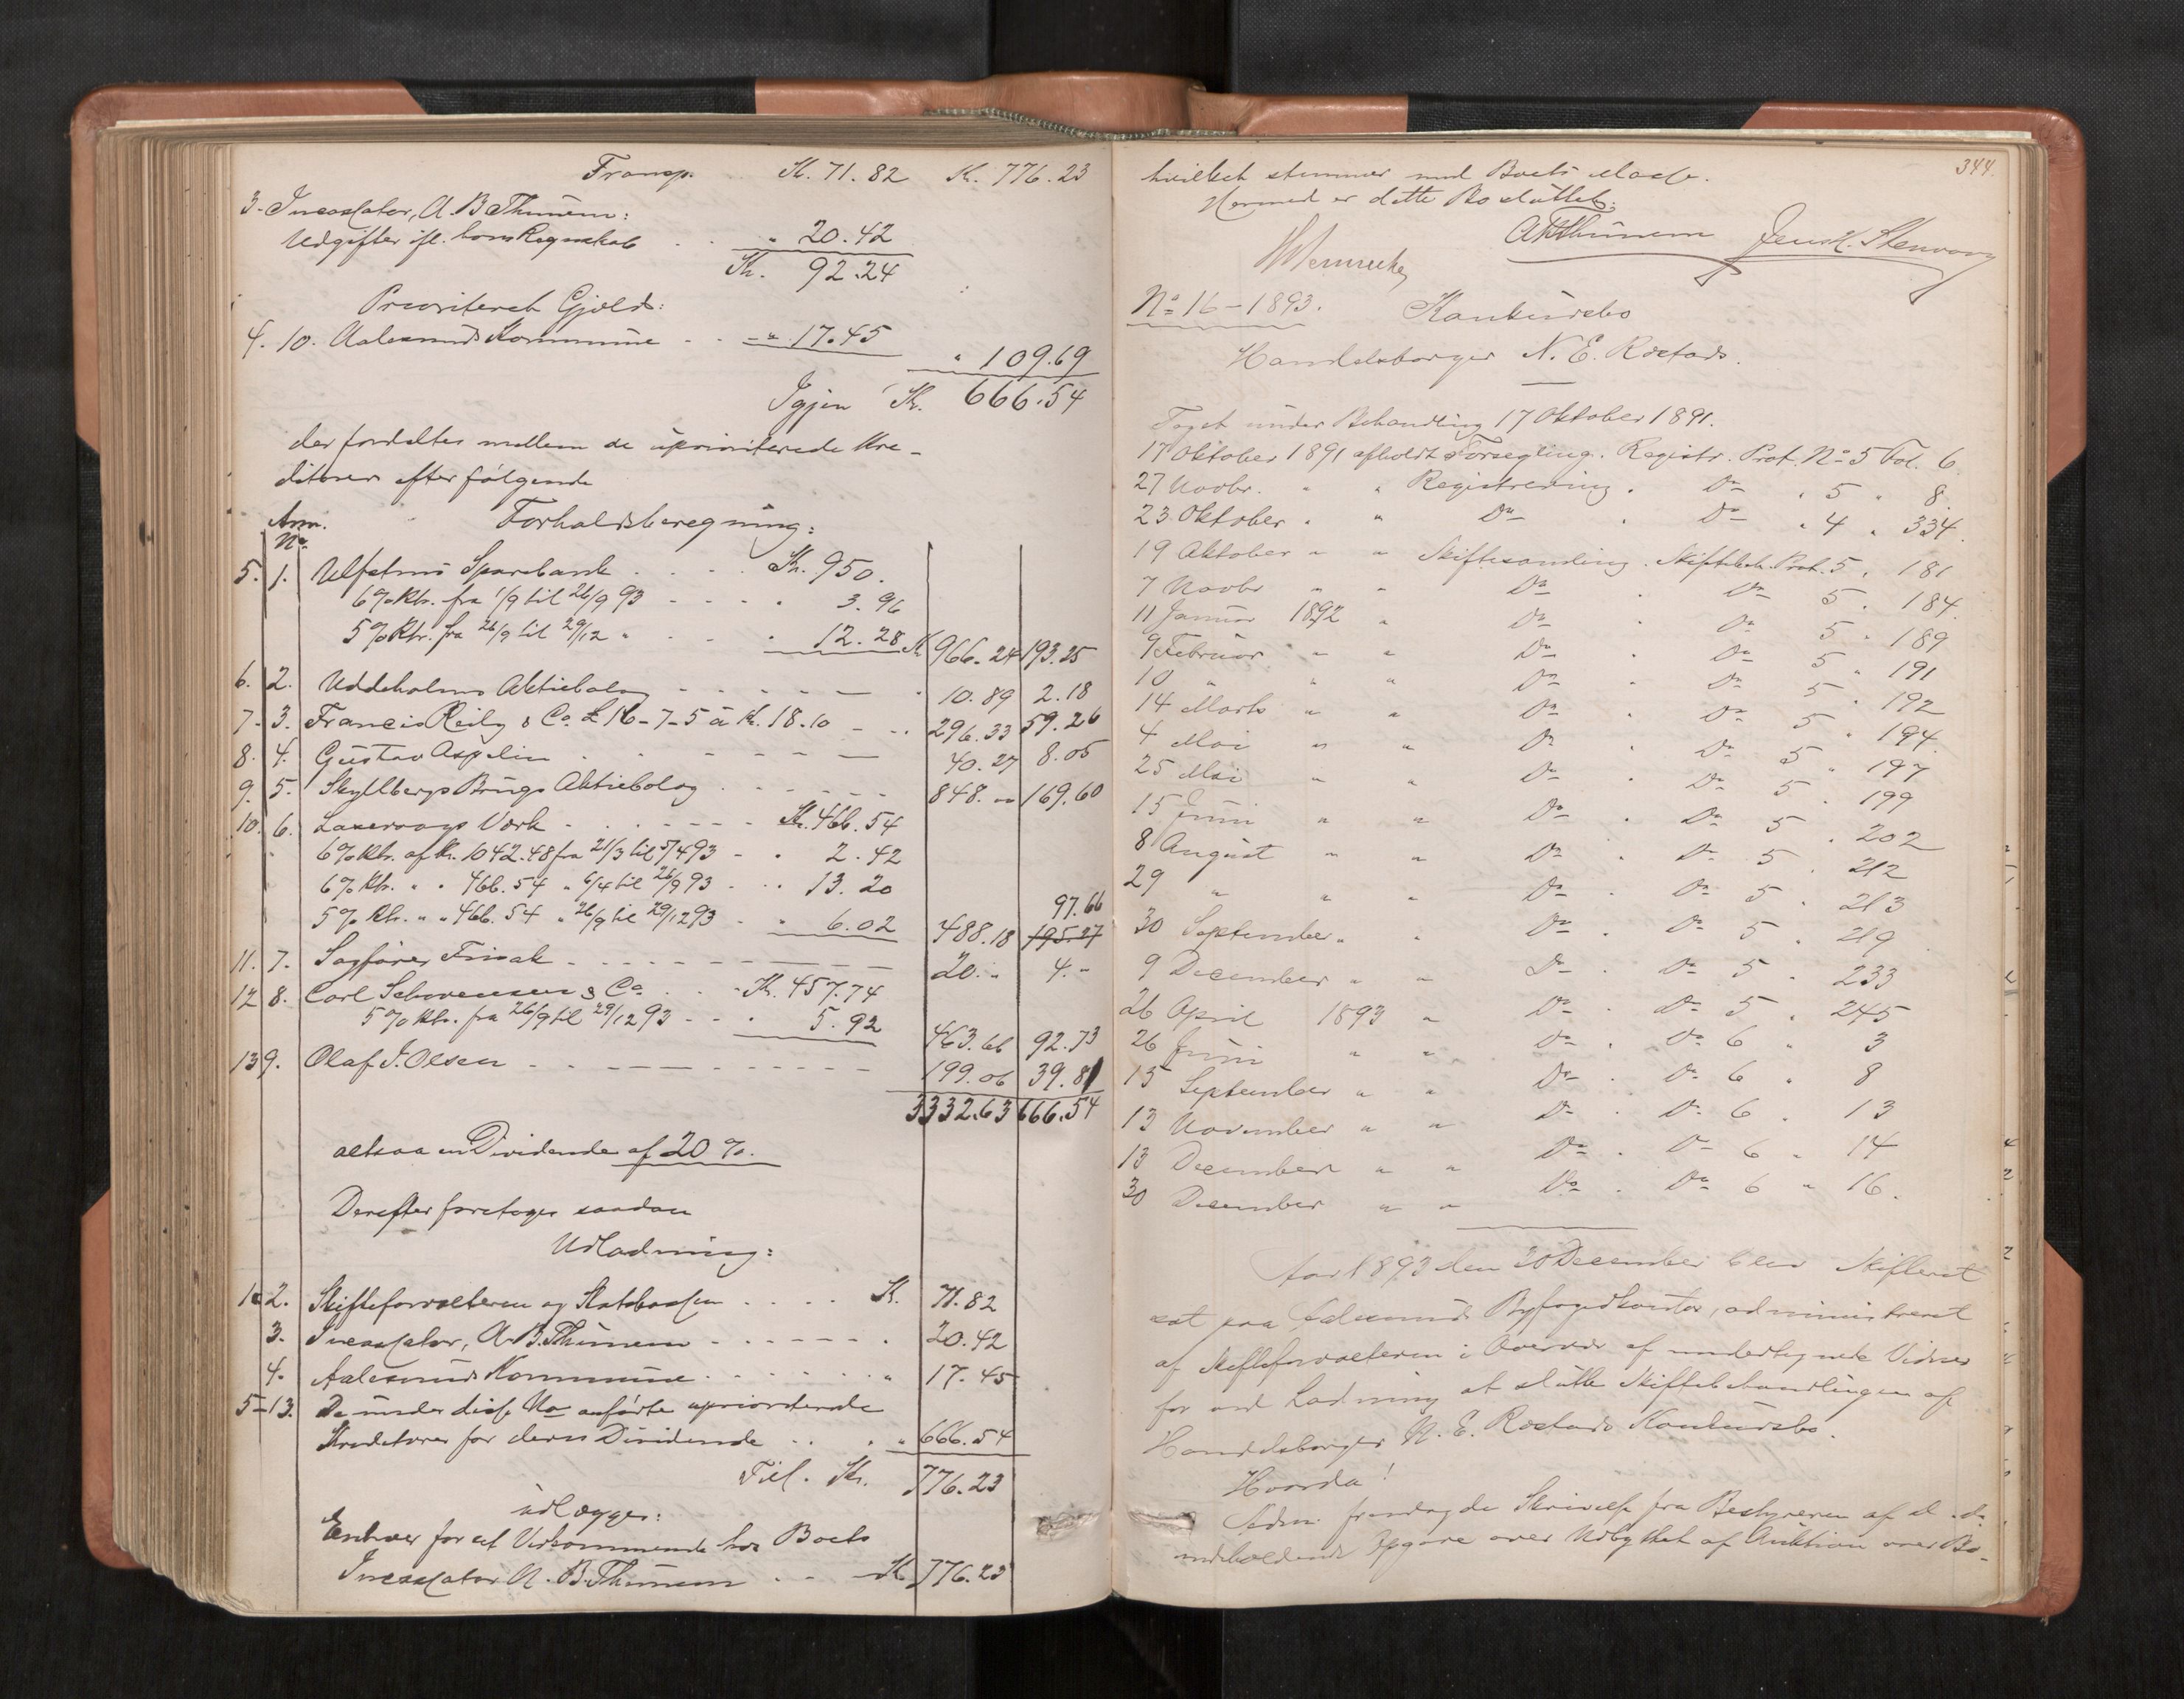 Transp. Kr. 71.82 Kr. 776.23
3. Incassator, A. B. Thunem:
Udgifter ifl. hans Regnskab " 20.42
Kr. 92.24
Prioriteret Gjæld:
4. 10. Aalesunds Kommune - - " 17.45
" 109.69
Igjen Kr. 666.54
der fordeltes mellem de uprioriterede Kre-
ditorer efter følgende
Anm. No. Forholdsberegning:
5. 1. Ulfstens Sparebank . . . . Kr. 950.
6% Rtr. fra 1/9 til 26/9 93 - - - - " 3.96
5% Rtr. fra 26/9 til 29/12 " . . . " 12.28 Kr. 966.24 193.25
6. 2. Uddeholms Aktiebolag - - - - - " 10.89 2.18
7. 3. Francis Reily & Co. £ 16-7-5 à Kr. 18.10 - - 296.33 59.26
8. 4. Gustav Aspelin . . - - - - 40.27 8.05
9. 5. Skyllbergs Brugs Aktiebolag . . - - - 848. " 169.60
10. 6. Laxevaags Værk - . . - - - Kr. 466.54
6% Rtr. af Kr. 1042.48 fra 21/3 til 5/4 93 - " 2.42
6% Rtr. " " 466.54 " 6/4 til 26/9 93 - . . 13.20
97.66
5% Rtr. " " 466.54 " 26/9 til 29/12 93 - " 6.02 488.18 195.27
11. 7. Sagfører Frisak - - - - - - - 20. " 4. -
12 8. Carl Schwensen & Co. . . . Kr. 457.74
5% Rtr. fra 26/9 til 29/12 93 - - " 5.92
463.66 92.73
13 9. Olaf J. Olsen - - - - - - - - - 199.06 39.81
3332.63 666.54
altsaa en Dividende af 20 %.
Derefter foretoges saadan
Udlodning:
1 & 2. Skifteforvalteren og Statskassen . . . . Kr. 71.82
3. Incassator, A. B. Thunem - - - - - - . 20.42
4. Aalesunds Kommune . . . . . . . " 17.45
5-13. De under disse No anførte uprioriterede
Kreditorer for deres Dividende . . . " 666.54
Til. Kr. 776.23
udlægges:
Enhver for sit Vedkommende hos Boets
Incassator A. B. Thunem . . - Kr. 776.23
344.
hvilket stemmer med Boets Masse.
Hermed er dette Bo sluttet.
ABThunem Jens K. Stenvaag
No 16-1893. Konkursbo
Handelsborger N. E. Røstads.
Taget under Behandling 17 Oktober 1891.
17 Oktober 1891 afholdt Forsegling. Registr. Prot. No 5 Fol. 6
27 Novbr. " " Registrering . Do " 5 " 8.
23 Oktober " " Do . Do " 4 " 334.
19 Oktober " " Skiftesamling . Skiftebeh. Prot. 5 . 181
7 Novbr " " Do . Do 5 . 184.
11 Januar 1892 " Do . Do 5 " 189
9 Februar " " Do . Do 5 " 191
10 " " " Do . Do 5 " 192
14 Marts " " Do . Do 5 " 194.
4 Mai " " Do . Do 5 " 197
25 Mai " " Do . Do 5 . 199
15 Juni " " Do . Do 5 . 202
8 August " " Do . Do 5 . 212
29 " " " Do . Do 5 . 213
30 September " " Do . Do 5 . 219
9 December " " Do . Do 5 . 233
26 April 1893 " Do . Do 5 . 245
26 Juni " " Do . Do 6 " 3
15 September " " Do . Do 6 " 8
13 November " " Do . Do 6 . 13
13 December " " Do . Do 6 " 14
30 December " " Do . Do 6 " 16.
Aar 1893 den 30 December blev Skifteret
sat paa Aalesunds Byfogedkontor, administreret
af Skifteforvalteren i Overvær af undertegnede Vidner
for ved Lodning at slutte Skiftebehandlingen af
Handelsborger N. E. Røstads Konkursbo.
Hvorda!
Adm. fremlagde Skrivelse fra Bestyreren af d. d.
indeholdende Opgave over Udbyttet af Auktion over Bo-